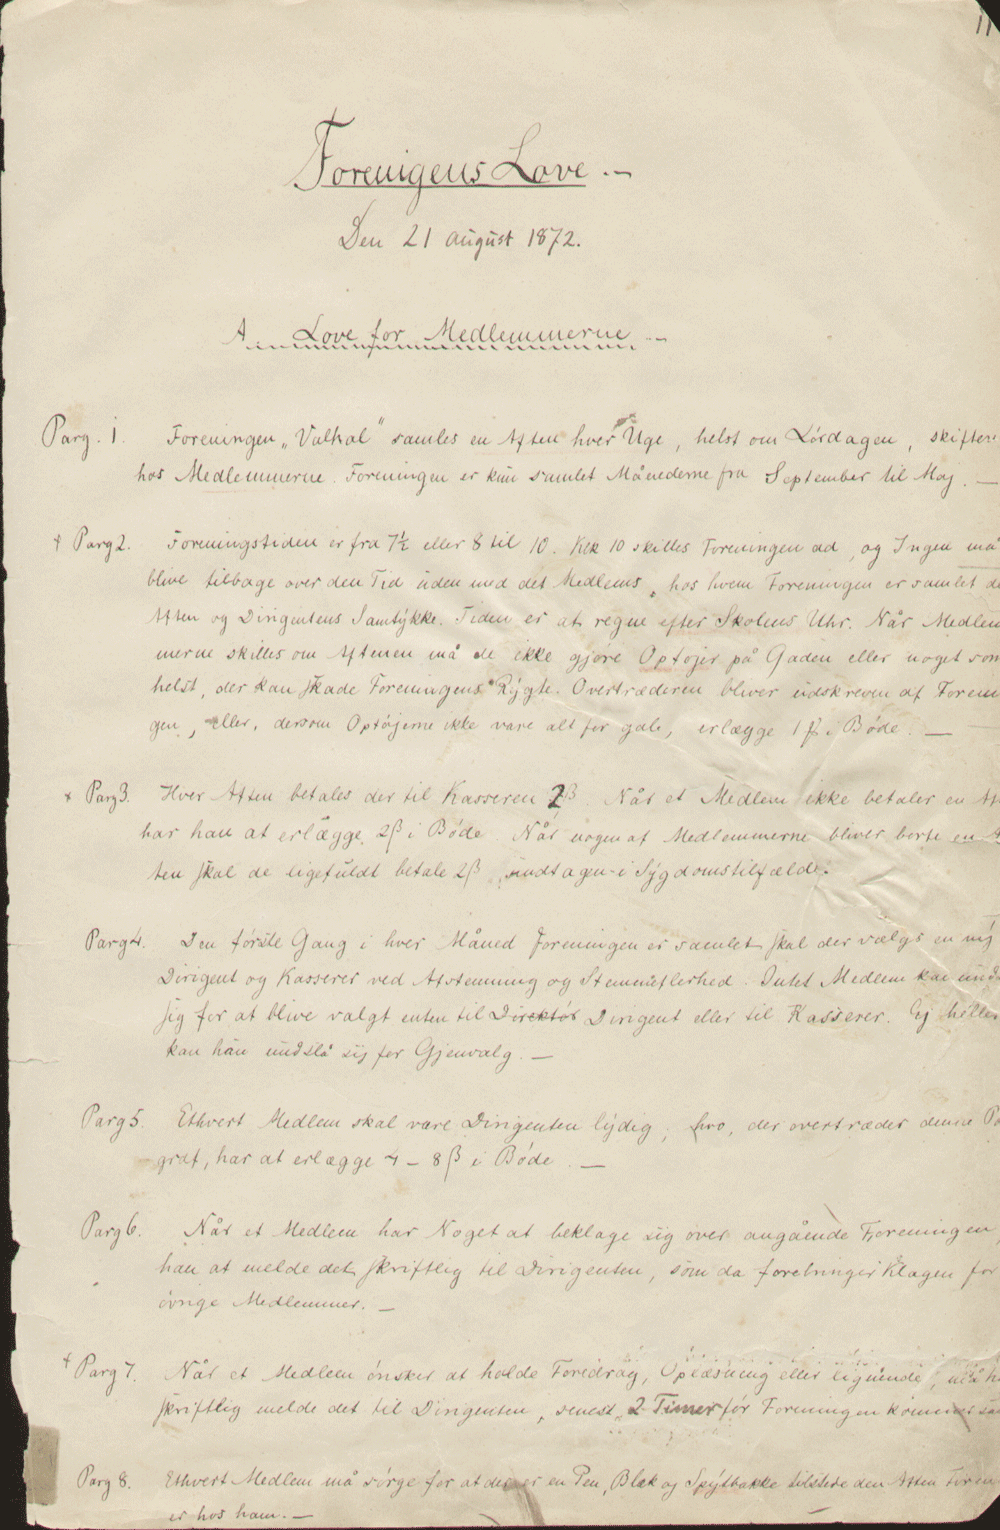 11
Forenigens Love.—
Den 21 august 1872.
A. Love for Medlemmerne.—
Parg. 1. Foreningen „Valhal" samles en Aften hver Uge, helst om Lørdagen, skifte
hos Medlemmerne. Foreningen er kun samlet Månederne fra September til Maj. —
+ Parg 2. Foreningstiden er fra 7½ eller 8 til 10. Klk 10 skilles Foreningen ad, og Ingen må
blive tilbage over den Tid uden med det Medlems, hos hvem Foreningen er samlet d
Aften og Dirigentens Samtykke. Tiden er at regne efter Skolens Uhr. Når Medlem
merne skilles om Aftenen må de ikke gjøre Optøjer på Gaden eller noget som
helst, der kan skade Foreningens Rygte. Overtræderen bliver udskreven af Forenin
gen, eller, dersom Optøjerne ikke vare alt for gale, erlægge 1 β i Bøde. —
+ Parg 3. Hver Aften betales der til Kasseren 2 β. Når et Medlem ikke betaler en Af
har han at erlægge 2 β i Bøde. Når nogen af Medlemmerne bliver borte en Af
ten skal de ligefuldt betale 2 β, undtagen i Sygdomstilfælde.
Parg 4. Den første Gang i hver Måned Foreningen er samlet skal der vælgs en ny
Dirigent og Kasserer ved Afstemning og Stemmeflerhed. Intet Medlem kan und
sig for at blive valgt enten til Direktør Dirigent eller til Kasserer. Ej heller
kan han undslå sig for Gjenvalg. —
Parg 5. Ethvert Medlem skal være Dirigenten lydig, hvo, der overtræder denne Pa
graf, har at erlægge 4 – 8 β i Bøde. —
Parg 6. Når et Medlem har Noget at beklage sig over angående Foreningen,
han at melde det skriftlig til Dirigenten, som da forebringer Klagen for
øvrige Medlemmer. —
+ Parg 7. Når et Medlem ønsker at holde Foredrag, Oplæsning eller lignende, må h
skriftlig melde det til Dirigenten, senest 2 Timer før Foreningen kommer sa
Parg 8. Ethvert Medlem må sørge for at der er en Pen, Blæk og Spytbakke tilstede den Aften Foren
er hos ham. —